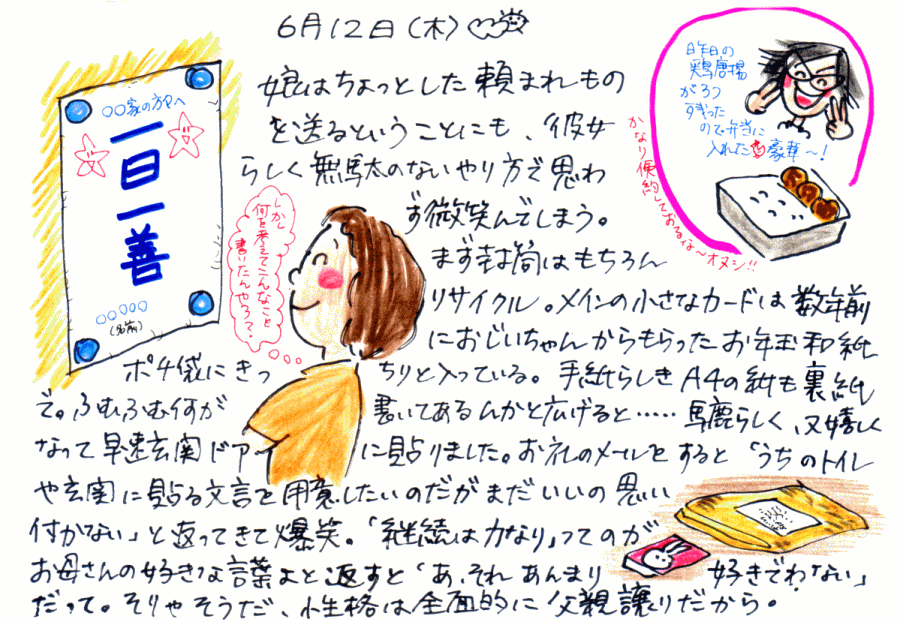 6月12日(木)
娘はちょっとした頼まれもの
を送るということにも、彼女
らしく無駄のないやり方で思わ
ず微笑んでしまう。
まず封筒はもちろん
リサイクル。メインの小さなカードは数年前
におじいちゃんからもらったお年玉和紙
ポチ袋にきっちりと入っている。手紙らしきA4の紙も裏紙
で。ふむふむ何が書いてあるんかと広げると……馬鹿らしく、又嬉しく
なって早速玄関ドアに貼りました。お礼のメールをすると「うちのトイレ
や玄関に貼る文言を用意したいのだがまだいいの思い
付かない」と返ってきて爆笑。「継続は力なり」ってのが
お母さんの好きな言葉よと返すと「あ、それあんまり好きでわない」
だって。そりゃそうだ、性格は全面的に父親譲りだから。
○○家の方々へ
一日一善
○○○○○
(名前)
しかし
何を考えてこんなこと
書いたんやろ?
昨日の
鶏唐揚
が3つ
残った
ので弁当に
入れた豪華〜!
かなり倹約しておるな〜オヌシ!!